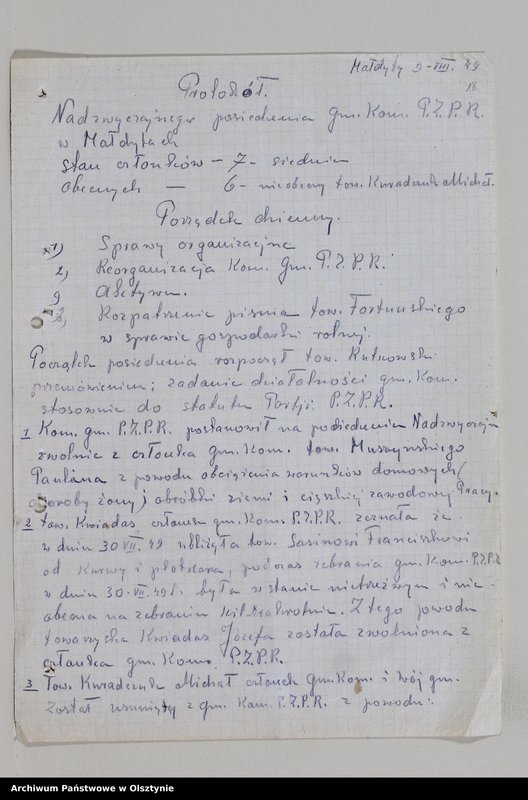 Małdyty 9-VIII. 49
18
Protokół.
Nadzwyczajnego posiedzenia gm. Kom. P.Z.P.R.
w Małdytach
stan członków – 7 – siedmiu
obecnych — 6 – nieobecny tow. Kwiadczuk Michał.
Porządek dzienny.
1) Sprawy organizacyjne
2) Reorganizacja Kom. Gm. P.Z.P.R.
Aktywu.
Rozpatrzenie pisma tow. Fortunskiego
w sprawie gospodarki rolnej.
Początek posiedzenia rozpoczął tow. Rutkowski
przemówieniem; zadanie działalności gm. Kom.
stosownie do statutu Partji P.Z.P.R.
1 Kom. gm. P.Z.P.R. postanowił na posiedzeniu Nadzwyczajn
zwolnić z członka gm. Kom. tow. Muszynskiego
Pauliana z powodu obciążenia warunków domowych (
choroby żony) obróbki ziemi i ciężkiej zawodowej Pracy.
2 tow. Kwiadas członek gm. Kom. P.Z.P.R. zeznała że
w dniu 30 VII 49 ubliżyła tow. Sasinowi Franciszkowi
od Kurwy i płotkara, podczas zebrania gm. Kom. P.Z.P.R
w dniu 30-VII-49 r. była w stanie nietrzeźwym i nie-
obecna na zebraniu kilkakrotnie. Z tego powodu
towarzyszka Kwiadas Józefa została zwolniona z
członka gm. Kom. P.Z.P.R.
3 Tow. Kwiadczuk Michał członek Gm. Kom. i Wój gm.
Został usunięty z gm. Kom. P.Z.P.R. z powodu:
Archiwum Państwowe w Olsztynie